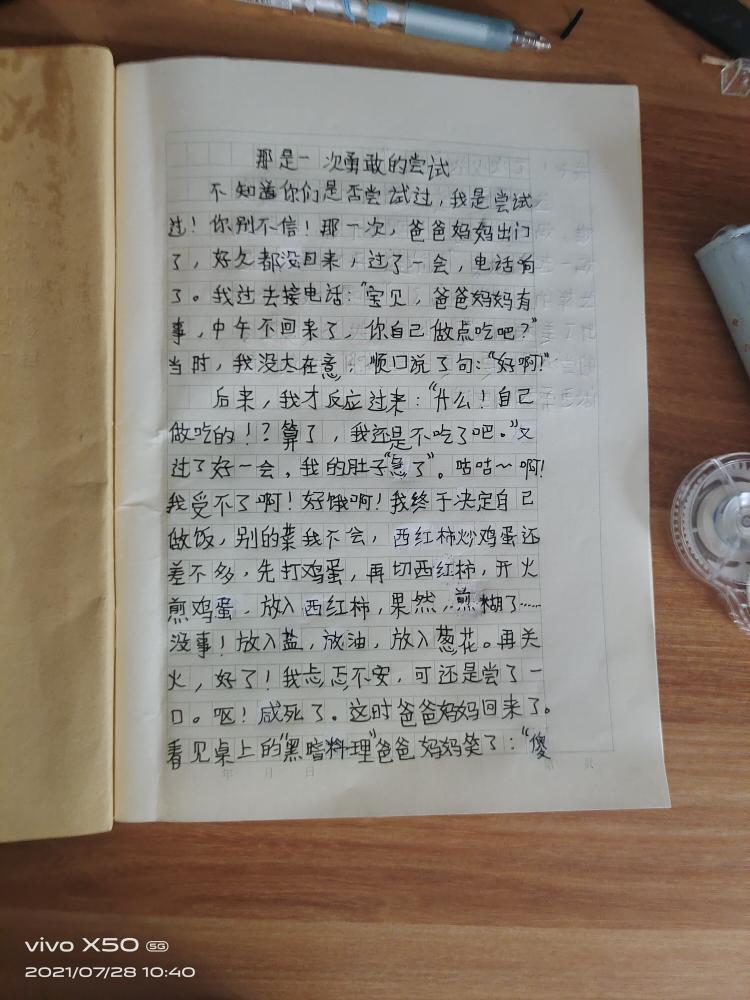 那是一次勇敢的尝试
不知道你们是否尝试过，我是尝试
过！你别不信！那一次，爸爸妈妈出门
了，好久都没回来，过了一会，电话响
了。我过去接电话：“宝贝，爸爸妈妈有
事，中午不回来了，你自己做点吃吧？”
当时，我没太在意，顺口说了句：“好啊！”
后来，我才反应过来：“什么！自己
做吃的！？算了，我还是不吃了吧。”又
过了好一会，我的肚子“急了”。咕咕～啊！
我受不了啊！好饿啊！我终于决定自己
做饭，别的菜我不会，西红柿炒鸡蛋还
差不多，先打鸡蛋，再切西红柿，开火
煎鸡蛋，放入西红柿，果然，煎糊了……
没事！放入盐，放油，放入葱花。再关
火，好了！我忐忑不安，可还是尝了一
口。呕！咸死了。这时爸爸妈妈回来了。
看见桌上的“黑暗料理”爸爸妈妈笑了：“傻
年 月 日
vivo X50 5G
2021/07/28 10:40